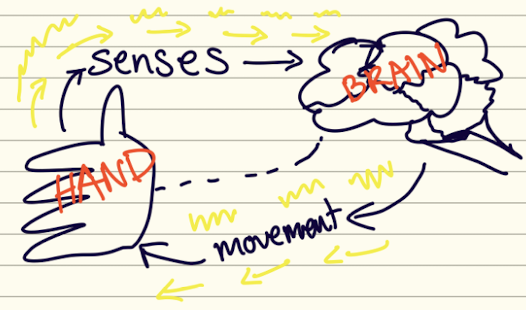 senses
BRAIN
HAND
movement